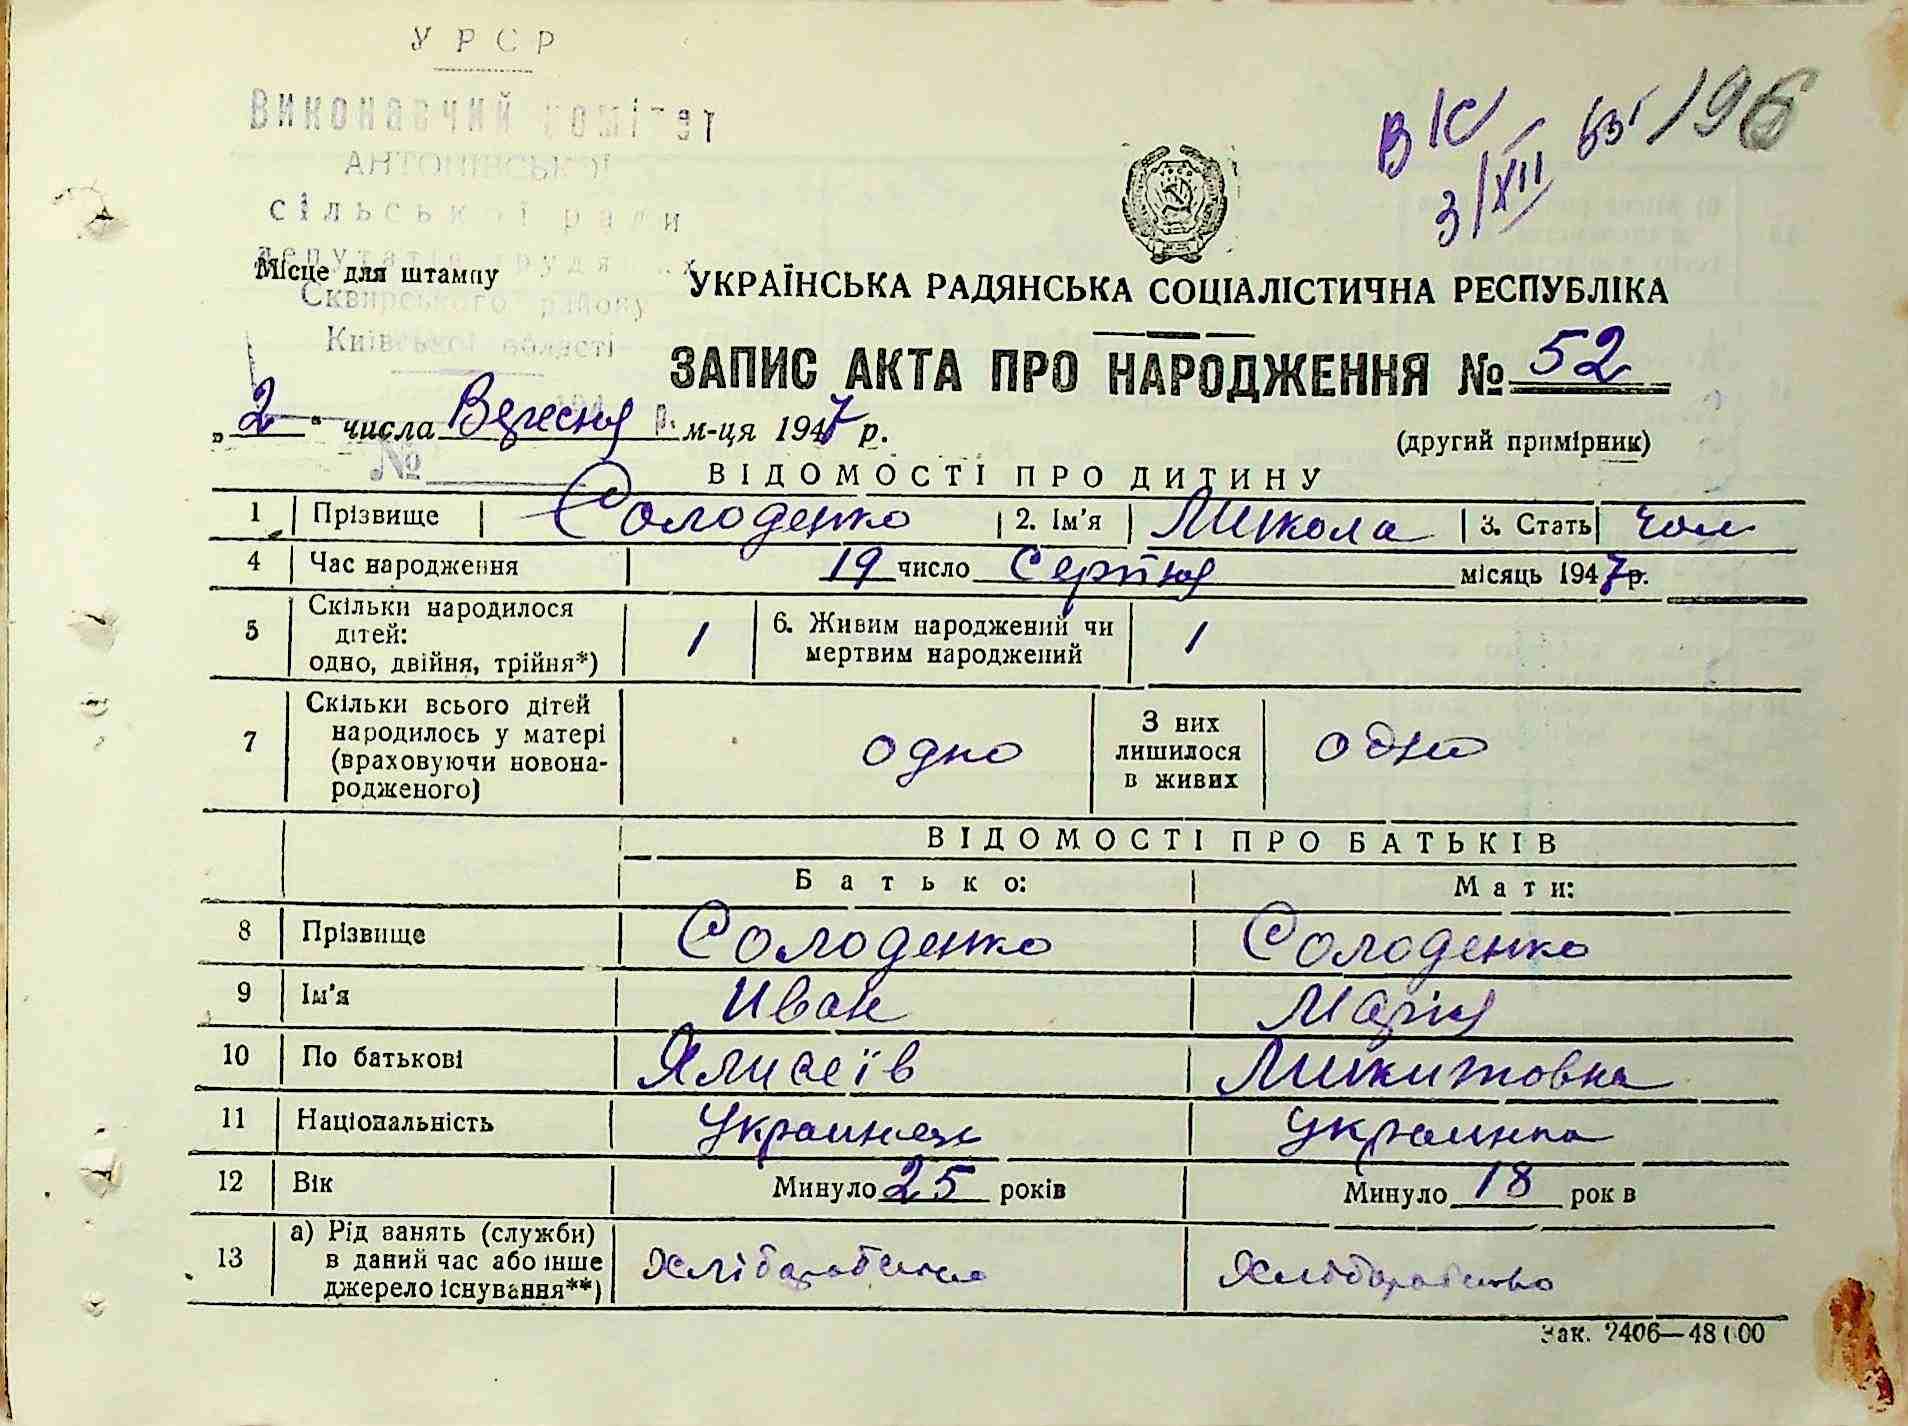 УРСР
Виконавчий комітет
АНТОНІВСЬКОЇ
сільської ради
депутатів трудящих
Сквирського району
Київської області
№
ВК 53 196
3/XII
Місце для штампу
УКРАЇНСЬКА РАДЯНСЬКА СОЦІАЛІСТИЧНА РЕСПУБЛІКА
ЗАПИС АКТА ПРО НАРОДЖЕННЯ № 52
„2“ числа Вересня м-ця 1947 р.
(другий примірник)
ВІДОМОСТІ ПРО ДИТИНУ
1 Прізвище Солоденко 2. Ім'я Микола 3. Стать чол
4 Час народження 19 число Серпня місяць 1947 р.
5 Скільки народилося дітей: одно, двійня, трійня*) 1 6. Живим народжений чи мертвим народжений 1
7 Скільки всього дітей народилось у матері (враховуючи новонародженого) одно З них лишилося в живих одно
ВІДОМОСТІ ПРО БАТЬКІВ
Батько: Мати:
8 Прізвище Солоденко Солоденко
9 Ім'я Иван Марія
10 По батькові Ялисеїв Микитовна
11 Національність Украинец украинка
12 Вік Минуло 25 років Минуло 18 рок в
13 а) Рід занять (служби) в даний час або інше джерело існування**) Хліборобство Хліборобство
Зак. 2406—48 00